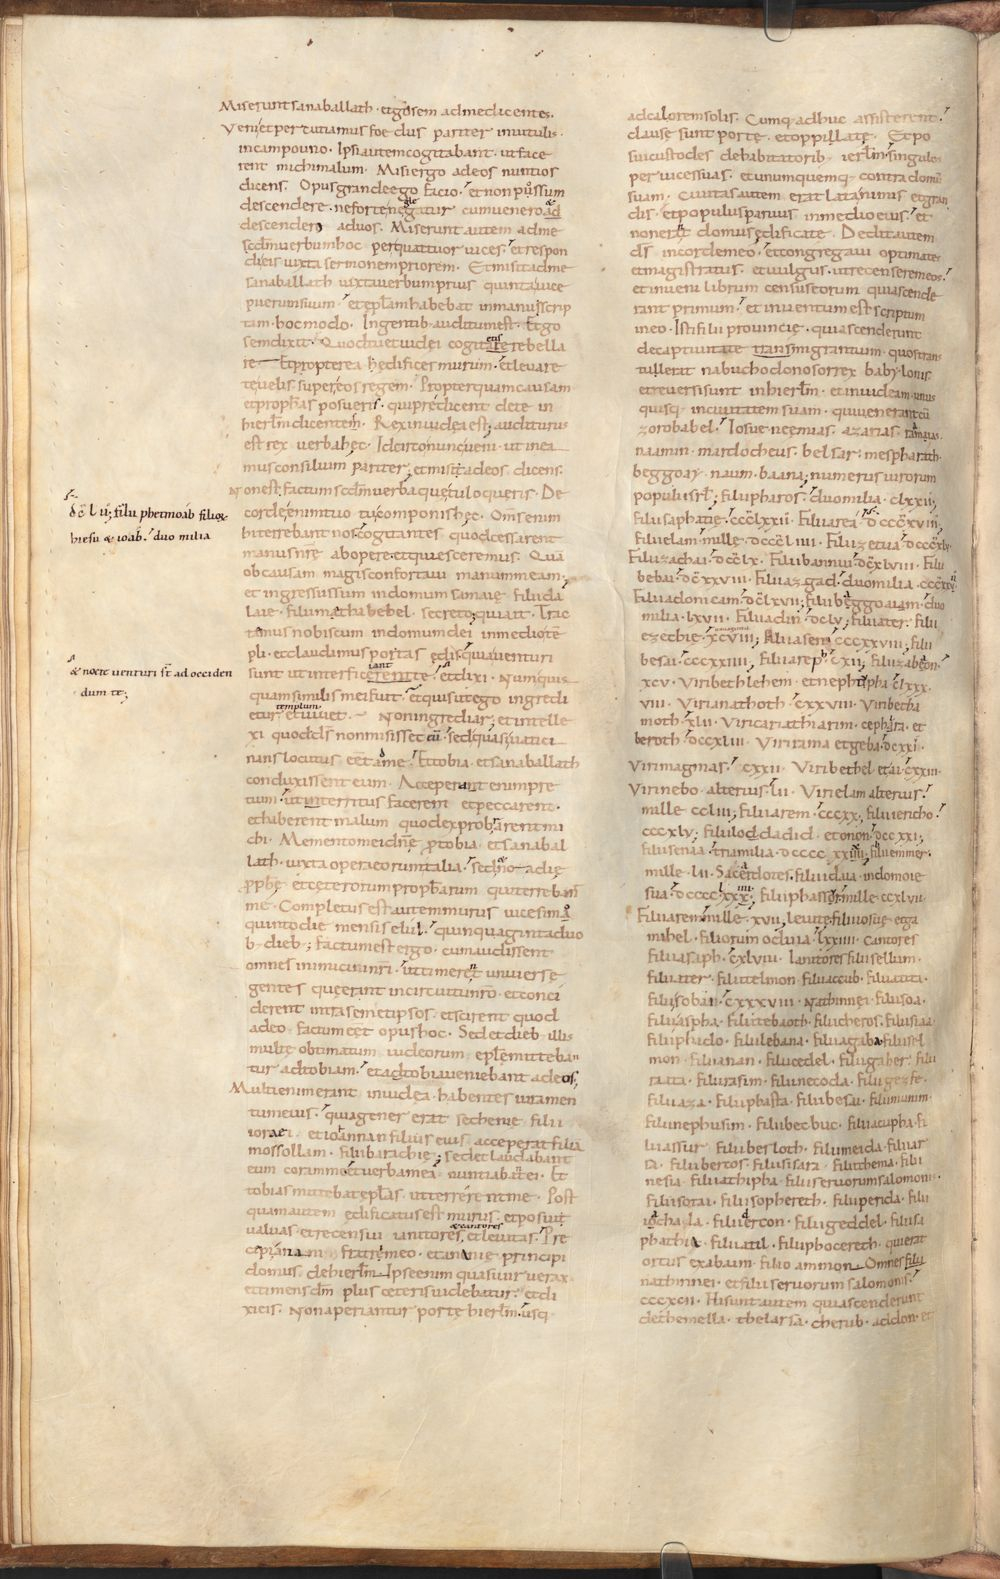 Miserunt sanaballath · et gosem ad me dicentes ·
Veni et percutiamus foedus pariter in vitulis ·
in campo uno · Ipsi autem cogitabant · ut face
rent michi malum · Misi ergo ad eos nuntios
dicens · Opus grande ego facio · et non possum
descendere · ne forte negle gatur cum venero & ad
descendero ad vos · Miserunt autem ad me
scdm verbum hoc per quattuor vices · et respon
di eis iuxta sermonem priorem · Et misit ad me
sanaballath iuxta verbum prius quinta vice
puerum suum · et eplam habebat in manu scrip
tam hoc modo · In gentib auditum est · Et go
sem dixit · Quod tu et iudei cogitatis rebella
re Et propterea hedifices murum · et levare
te velis super eos regem · Propter quam causam
et prophas posueris · qui predicent de te in
hierlm dicentem · Rex in iudea est · auditurus
est rex verba hec · Idcirco nunc veni · ut inea
mus consilium pariter ; et misi ad eos dicens ·
Non est factum scdm verba que tu loqueris · De
corde enim tuo tu componis hec · Oms enim
hi terrebant nos cogitantes quod cessarent
manus nre ab opere · et quiesceremus · Qua
ob causam magis confortavi manum meam
et ingressus sum in domum samaie filii da
laie · filii mathabehel secreto qui ait · Trac
temus nobiscum in domum dei in medio te
pli · et claudamus portas edis quia venturi
sunt ut interficiant te · et dixi · Numquis
quam similis mei fuit · et quis ut ego ingredi
etur templum et vivet · Non ingrediar · et intelle
xi quod ds non misisset eum · sed quasi vatici
nans locutus eet ad me · Et tobia · et sanaballath
conduxissent eum · Acceperant enim pre
tium · ut interritus facerem et peccarem ·
et haberent malum quod exprobrarent mi
chi · Memento mei dne pro tobia · et sanabal
lath · iuxta opera eorum talia · sed noadie
prophe et ceterorum prophetarum qui terrebant
me · Completus est autem murus vicesimo
quinto die mensis elul · quinquaginta duo
b dieb ; factum est ergo · cum audissent
omnes inimici nri · ut timerent universe
gentes que erunt in circuitu nro · et conci
derent intra semetipsos · et scirent quod
a deo factum eet opus hoc · Sed et dieb illis
multe obtimatum iudeorum eple mitteban
tur ad tobiam · et a tobia veniebant ad eos ;
Multi enim erant in iudea habentes iuramen
tum eius · quia gener erat sechenie filii
iorael · et iohannan filius eius acceperat filia
mossollam · filii barachie ; sed et laudabant
eum coram me · et verba mea nuntiabant ei · Et
tobias mittebat eplas ut terreret me · Post
quam autem edificatus est murus · et posui
valvas · et recensui ianitores · & cantores et levitas · Pre
cepi anani fratri meo · et ananie principi
domus de hierlm · Ipse enim quasi vir verax
et timens dm plus ceteris videbatur · et di
xi eis · Non aperiantur porte hierlm · usq
dcc̄ l ii ; filii phetmoab filior
hiesu & ioab · duo milia
& nocte venturi st ad occiden
dum te ;
ad calorem solis · Cumq adhuc assisterent ·
clause sunt porte et oppilate · Et po
sui custodes de habitatorib ierlm · singulos
per vices suas · et unumquemq contra domu
suam · Civitas autem erat lata nimis et gran
dis · et populus parvus in medio eius · et
non erant domus edificate · Dedit autem
ds in corde meo · et congregavi optimates
et magistratus · et vulgus · ut recenserem eos ·
et inveni librum census eorum qui ascende
rant primum · et inventum est scriptum
in eo · Isti filii provincie · qui ascenderunt
de captivitate transmigrantium · quos trans
tullerat nabuchodonosor rex babylonis
et reversi sunt in hierlm · et in iudeam · unus
quisq in civitatem suam · qui venerant cu
zorobabel · Iosue · neemias · azarias · ramaias ·
naamin · mardocheus · belsar · mespharath
beggoay · naum · baana ; numerus virorum
populi isrl ; filii pharos · duo milia · clxxii ;
filii saphatie · ccclxxii · Filii area · dc
filii elam · mille · dcccliiii · Filii zetua · dcccxlv
Filii zachai · dcclx · Filii bannui · dcxlviii · Filii
bebai · dcxxviii · Filii azgad · duo milia · cccxxii
Filii adonicam · dclxvii ; filii beggoaiam · duo
milia · lxvii · Filii adin · dclv ; filii ater · filii
ezechie · xcviii ; filii asem cccxxviii ; filii
besai · cccxxiiii ; filii areph · cxii ; filii zabeon ·
xcv · Viri bethlehem · et nephtupha clxxx
viii · Viri anathoth · cxxviii · Viri betha
moth · xlii · Viri cariathiarim · cephara · et
beroth · dccxliii · Viri rama et geba · dcxxi ·
Viri magmas · cxxii · Viri bethel et ai · cxxiii ·
Viri nebo · alterius · lii · Viri elam alterius ·
mille ccliii ; filii arem · cccxx ; filii iericho ·
cccxlv ; filii lod dadid · et onon · dccxxi ;
filii senaa · tria milia · dcccc xxx filii emmer ·
mille · lii · Sacerdotes · filii idaia · in domo ie
sua · dcccc filii phassur · mille ccxlvii
Filii arem · mille · xvii ; levite · filii iosue · et ga
mihel · filiorum oduia · lxxiiii · cantores
filii asaph · cxlviii · Ianitores filii sellum ·
filii ater · filii telmon · filii accub · filii atita ·
filii sobai · cxxxviii · Nathinnei · filii soa ·
filii aspha · filii tebaoth · filii cheros · filii siaa ·
filii phado · filii lebana · filii agaba · filii sel
mon · filii anan · filii cedel · filii gaher · filii
raaia · filii rasim · filii necoda · filii gezfe ·
filii aza · filii phasta · filii besai · filii munim ·
filii nephusim · filii becbuc · filii acupha · fi
lii assur · filii besloth · filii meida · filii ar
sa · filii bercos · filii sisara · filii thema · filii
nesia · filii athipha · filii servorum salomonis ·
filii sotai · filii sophereth · filii perida · filii
iachala · filii dercon · filii geddel · filii sa
phathia · filii atil · filii phocereth · qui erat
ortus ex abaim · filio ammon · Omnes filii
nathinnei · et filii servorum salomonis ·
cccxcii · Hi sunt autem qui ascenderunt
de themella · thelarsa · cherub · addon · et